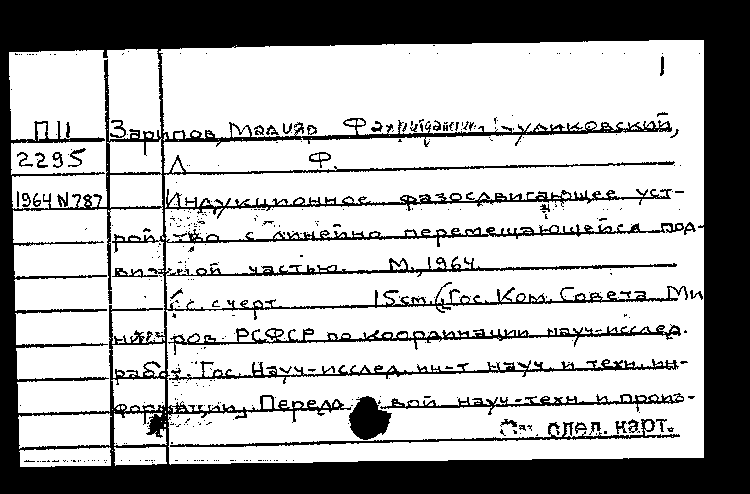 1
П11 Зарипов, Мадияр Куликовский,
2295 Л Ф.
1964 N 787 Индукционное фазосдвигающее уст-
ройство с линейно перемещающейся под-
вижной частью. М., 1964.
с. с черт. 15 см. (Гос. Ком. Совета Ми
нистров РСФСР по координации науч-исслед.
работ. Гос. Науч-исслед. ин-т науч. и техн. ин-
формации, Передовой науч-техн. и произ-
См. след. карт.